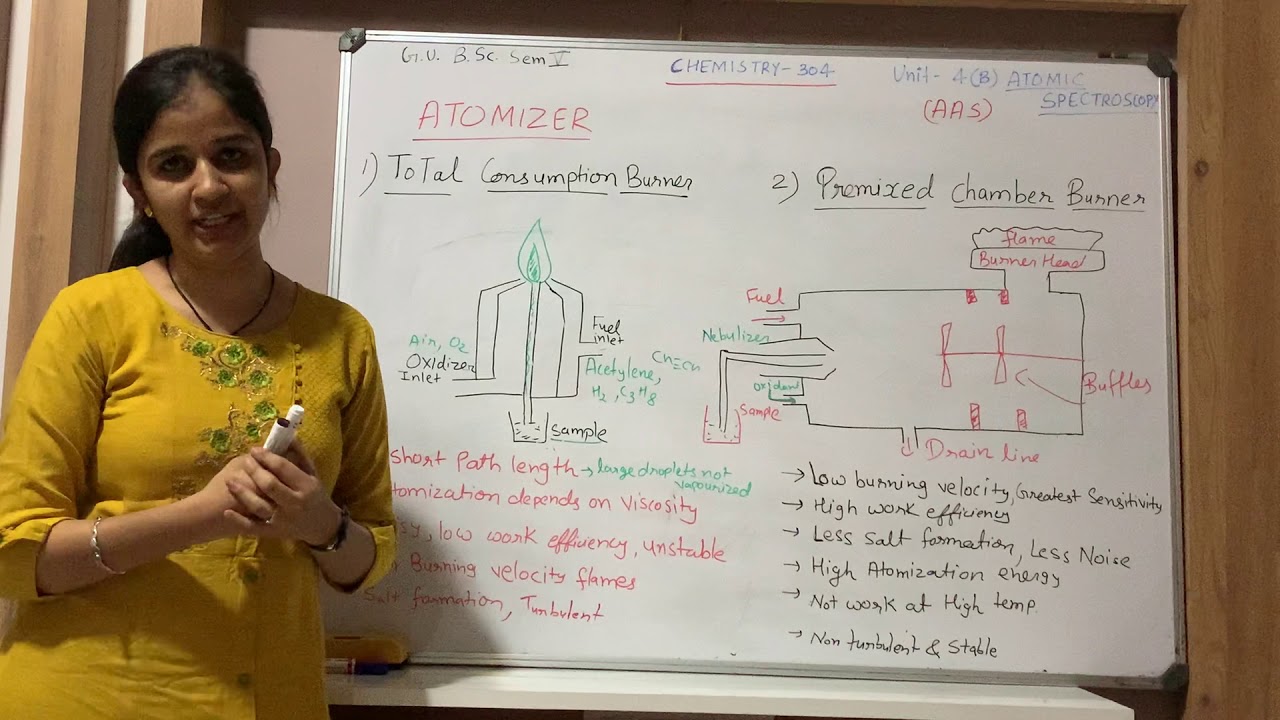 G.U. B.Sc. Sem V
CHEMISTRY-304
Unit-4(B) ATOMIC
SPECTROSCOPY
(AAS)
ATOMIZER
1) ToTal Consumption Burner
Air, O2
OXIdizer
Inlet
Fuel
inlet
Acetylene, CH≡CH
H2, C3H8
Sample
short Path length → large droplets not
vapourized
tomization depends on Viscosity
sy, low work efficiency, unstable
Burning velocity flames
Salt formation, Turbulent
2) Premixed Chamber Burner
flame
Burner Head
Fuel
Nebulizer
Oxidant
Sample
Buffles
Drain line
→ Low burning velocity, Greatest Sensitivity
→ High work efficiency
→ Less Salt formation, Less Noise
→ High Atomization energy
→ Not work at High temp.
→ Non turbulent & Stable